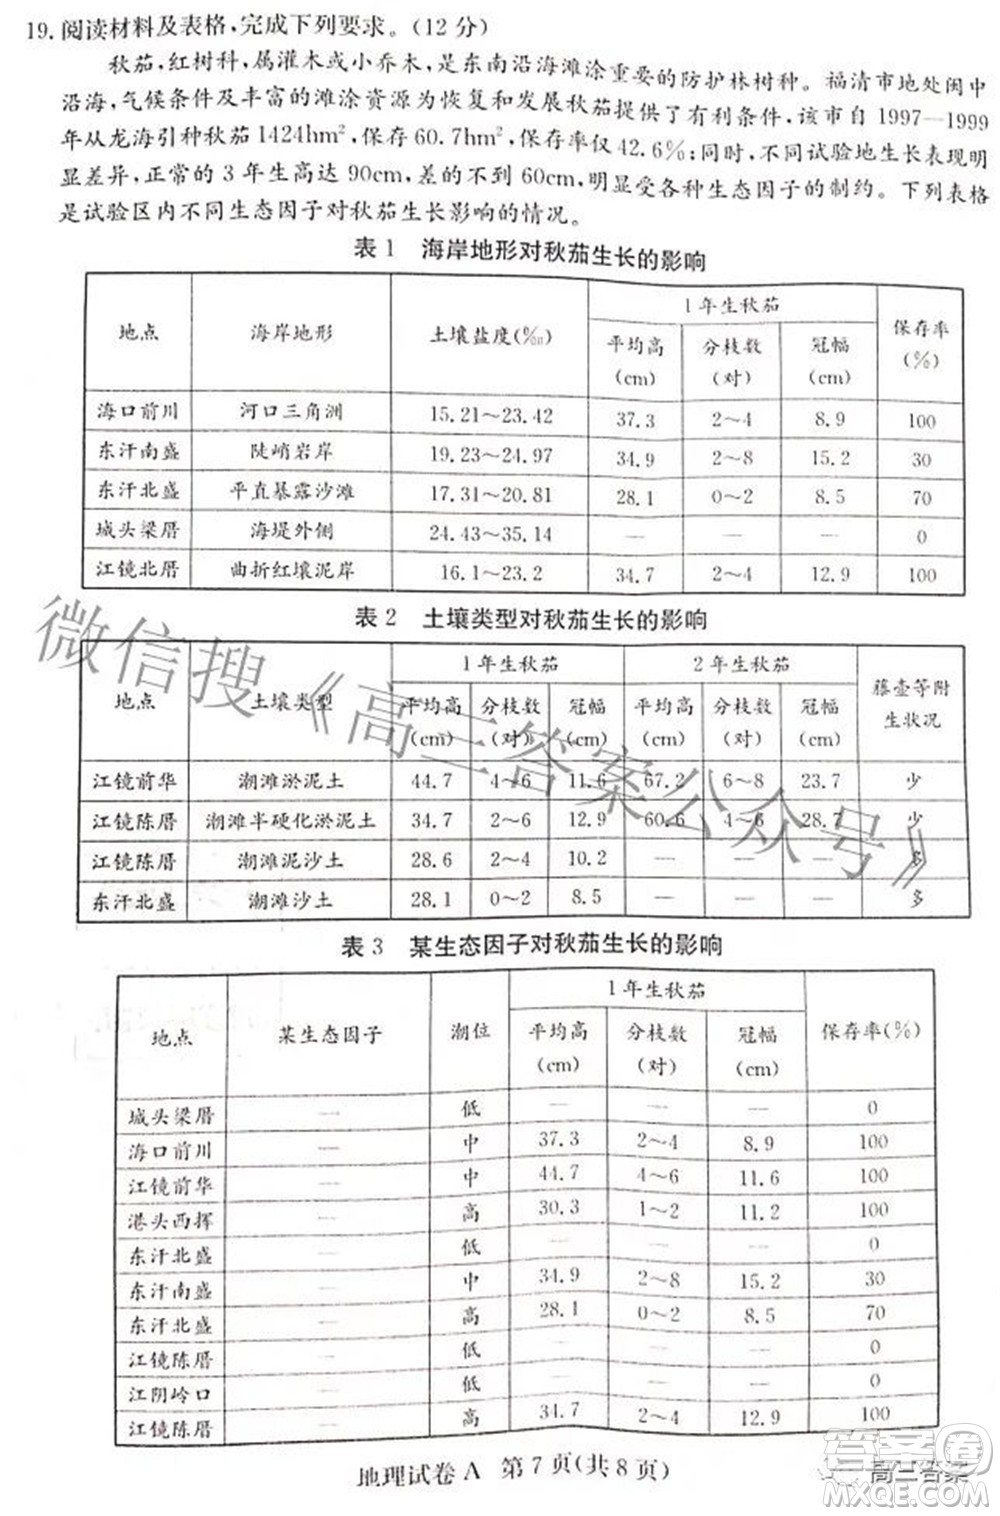 19. 阅读材料及表格,完成下列要求。(12分)
秋茄,红树科,属灌木或小乔木,是东南沿海滩涂重要的防护林树种。福清市地处闽中
沿海,气候条件及丰富的滩涂资源为恢复和发展秋茄提供了有利条件,该市自 1997—1999
年从龙海引种秋茄1424hm²,保存60.7hm²,保存率仅42.6%;同时,不同试验地生长表现明
显差异,正常的3年生高达90cm,差的不到60cm,明显受各种生态因子的制约。下列表格
是试验区内不同生态因子对秋茄生长影响的情况。
表1 海岸地形对秋茄生长的影响
地点 海岸地形 土壤盐度(‰) 1年生秋茄 保存率(%)
平均高(cm) 分枝数(对) 冠幅(cm)
海口前川 河口三角洲 15.21～23.42 37.3 2～4 8.9 100
东汗南盛 陡峭岩岸 19.23～24.97 34.9 2～8 15.2 30
东汗北盛 平直暴露沙滩 17.31～20.81 28.1 0～2 8.5 70
城头梁厝 海堤外侧 24.43～35.14 — — — 0
江镜北厝 曲折红壤泥岸 16.1～23.2 34.7 2～4 12.9 100
表2 土壤类型对秋茄生长的影响
地点 土壤类型 1年生秋茄 2年生秋茄 藤壶等附生状况
平均高(cm) 分枝数(对) 冠幅(cm) 平均高(cm) 分枝数(对) 冠幅(cm)
江镜前华 潮滩淤泥土 44.7 4～6 11.6 67.2 6～8 23.7 少
江镜陈厝 潮滩半硬化淤泥土 34.7 2～6 12.9 60.6 4～6 28.7 少
江镜陈厝 潮滩泥沙土 28.6 2～4 10.2 — — — 多
东汗北盛 潮滩沙土 28.1 0～2 8.5 — — — 多
表3 某生态因子对秋茄生长的影响
地点 某生态因子 潮位 1年生秋茄 保存率(%)
平均高(cm) 分枝数(对) 冠幅(cm)
城头梁厝 — 低 — — — 0
海口前川 — 中 37.3 2～4 8.9 100
江镜前华 — 中 44.7 4～6 11.6 100
港头西挥 — 高 30.3 1～2 11.2 100
东汗北盛 — 低 — — — 0
东汗南盛 — 中 34.9 2～8 15.2 30
东汗北盛 — 高 28.1 0～2 8.5 70
江镜陈厝 — 低 — — — 0
江阴岭口 — 低 — — — 0
江镜陈厝 — 高 34.7 2～4 12.9 100
地理试卷A 第7页(共8页)
微信搜《高三答案公众号》
高三答案
答案圈
MXQE.COM